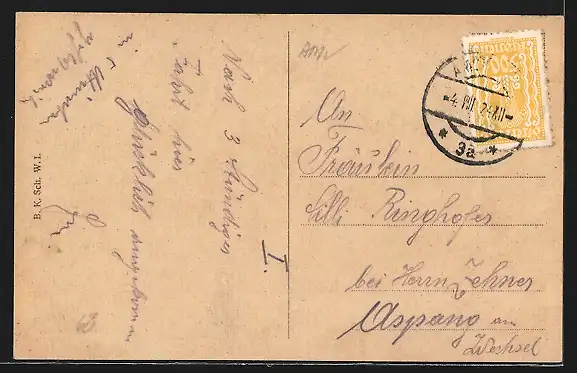 Nach 3 stündiger
Fahrt hier
glücklich angekommen
I.
B. K. Sch. W. I.
4. VIII. 24
* 3a *
An
Fräulein
Lilli Ringhofer
bei Herrn Zehner
Aspang am
Wechsel